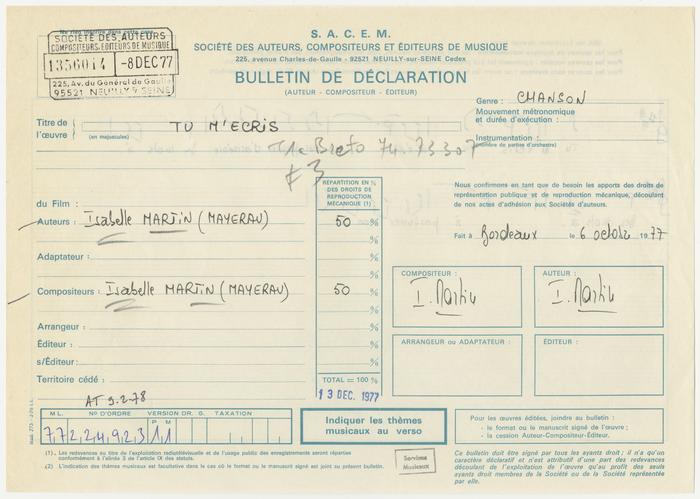 S. A. C. E. M.
SOCIÉTÉ DES AUTEURS, COMPOSITEURS ET ÉDITEURS DE MUSIQUE
225, avenue Charles-de-Gaulle - 92521 NEUILLY-sur-SEINE Cedex
BULLETIN DE DÉCLARATION
(AUTEUR - COMPOSITEUR - ÉDITEUR)
SOCIÉTÉ DES AUTEURS
COMPOSITEURS, EDITEURS DE MUSIQUE
1356014 -8DEC77
225, Av. du Général de Gaulle
95521 NEUILLY S/SEINE
Genre : CHANSON
Mouvement métronomique
et durée d'exécution :
Instrumentation :
(nombre de parties d'orchestre)
Titre de l'œuvre
(en majuscules)
TU M'ECRIS
74.73307
RÉPARTITION EN %
DES DROITS DE
REPRODUCTION
MÉCANIQUE (1) :
du Film :
Auteurs : Isabelle MARTIN (MAYERAU) 50 %
Adaptateur : %
Compositeurs : Isabelle MARTIN (MAYERAU) 50 %
Arrangeur : %
Éditeur : %
s/Éditeur : %
Territoire cédé :
TOTAL = 100 %
13 DEC. 1977
Nous confirmons en tant que de besoin les apports des droits de
représentation publique et de reproduction mécanique, découlant
de nos actes d'adhésion aux Sociétés d'auteurs.
Fait à Bordeaux le 6 octobre 1977
COMPOSITEUR :
I. Martin
AUTEUR :
I. Martin
ARRANGEUR ou ADAPTATEUR :
ÉDITEUR :
AT 9.2.78
M L. Nº D'ORDRE VERSION DR. G. TAXATION
P M
7722492311
Indiquer les thèmes
musicaux au verso
Pour les œuvres éditées, joindre au bulletin :
- le format ou le manuscrit signé de l'œuvre ;
- la cession Auteur-Compositeur-Éditeur.
(1). Les redevances au titre de l'exploitation radiotélévisuelle et de l'usage public des enregistrements seront réparties
conformément à l'alinéa 3 de l'article IX des statuts.
(2) L'indication des thèmes musicaux est facultative dans le cas où le format ou le manuscrit signé est joint au présent bulletin.
Services
Musicaux
Ce bulletin doit être signé par tous les ayants droit ; il n'a qu'un
caractère déclaratif et n'est attributif d'une part des redevances
découlant de l'exploitation de l'œuvre qu'au profit des seuls
ayants droit membres de la Société ou de Sociétés représentée
par elle.